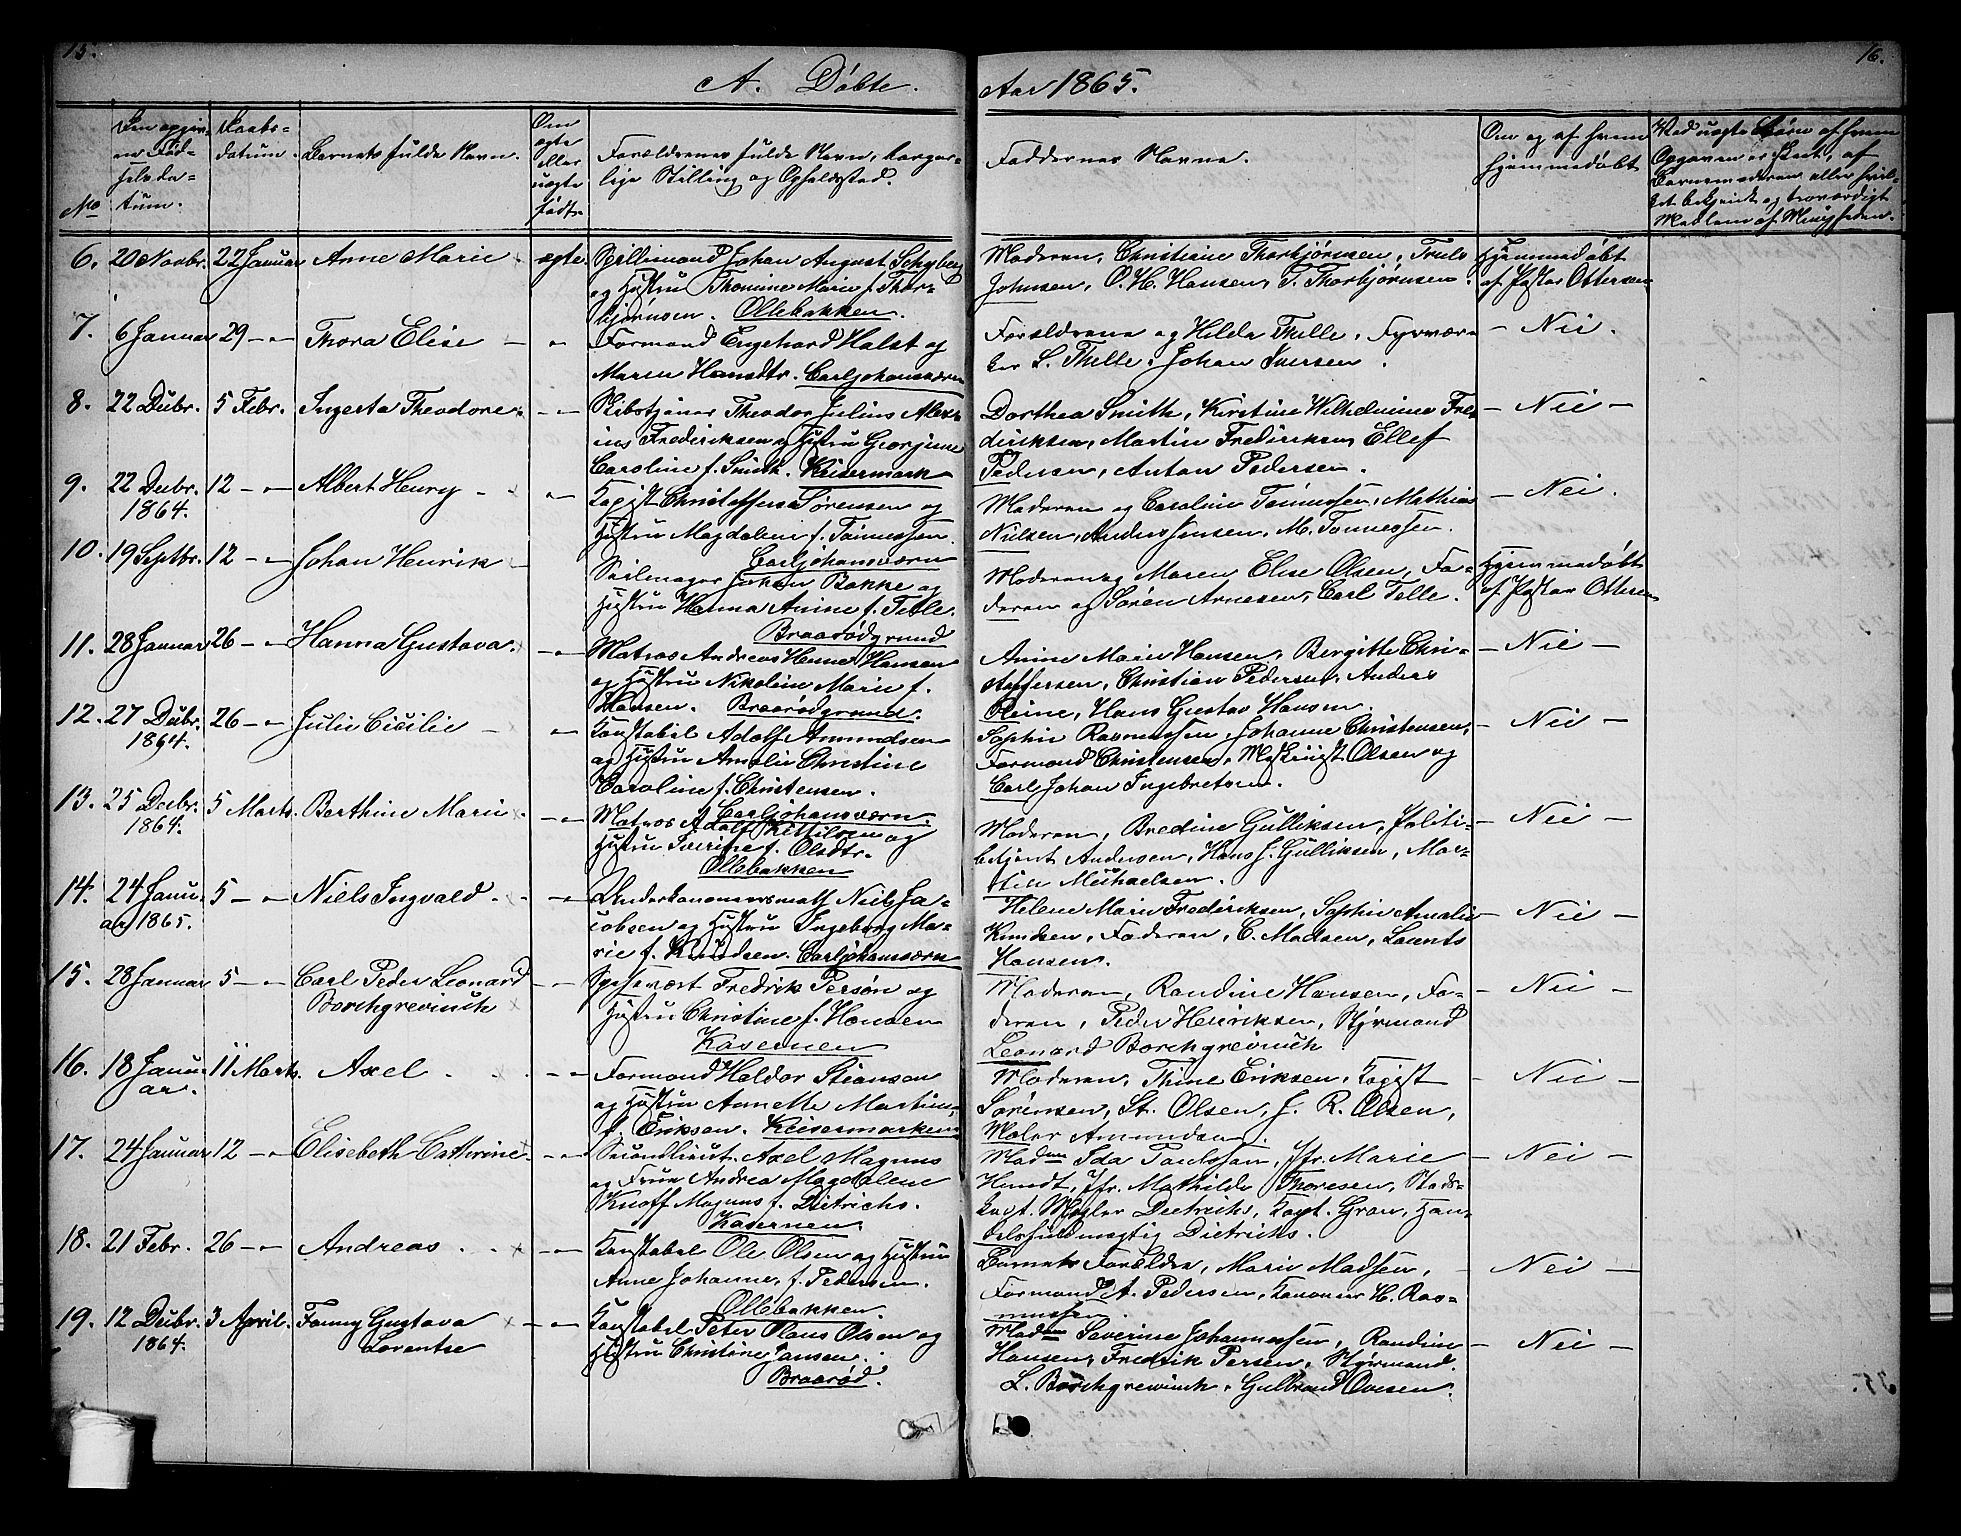 15.
16.
A. Döbte.
Aar 1865.
No
Den opgiv-
ne Fød-
selsda-
tum.
Daabs-
datum.
Barnets fulde Navn.
Om
ægte
eller
uægte
født.
Forældrenes fulde Navn, borger-
lige Stilling og Opholdssted.
Faddernes Navne.
Om og af hvem
hjemmedøbt
Ved uægte Børn af hvem
Opgaven er skeet, af
Barnemoderen eller hvil-
ket bekjendt og troværdigt
Medlem af Menigheden.
6. 20 Novbr. 22 Januar Anne Marie ægte
Spillemand Johan August Schyberg
og Hustru Thomine Marie f. Thor-
bjørnsen. Ollebakken.
Moderen, Christine Thorbjørnsen, Truls
Johnsen, O. H. Hansen, T. Thorbjørnsen.
Hjemmedøbt
af Pastor Ottersen
7. 6 Januar 29 - " - Thora Elise - "
Formand Engehard Holst og
Maren Hansdtr. Carljohansværn
Forældrene og Hilda Thelle, Fyrvær-
ker L. Thelle, Johan Iversen.
- Nei.
8. 22 Decbr. 5 Febr. Ingerta Theodore - " -
Skibstjener Theodor Julius Alex-
ius Frederiksen og Hustru Georgine
Caroline f. Smith. Keisermark
Dorthea Smith, Kirstine Wilhelmine Fre-
deriksen, Martin Frederiksen, Ellef
Pedersen, Anton Pedersen.
- Nei -
9. 22 Decbr. 12 - " - Albert Henry - "
1864.
Kogist Christoffer Sørensen og
Hustru Magdalene f. Tønnessen.
Carljohansværn
Moderen og Caroline Tønnessen, Mathias
Nielsen, Anders Jensen, M. Tønnessen.
- Nei.
10. 19 Septbr. 12 - " - Johan Henrik -
Seilmager Johan Bakke og
Hustru Hanna Anine f. Telle.
Braarødgrund
Moderen og Maren Elise Olsen, Fa-
deren og Søren Arnesen, Carl Telle.
Hjemmedøbt
af Pastor Ottersen
11. 28 Januar 26 - " - Hanna Gustava. - " -
Matros Andreas Hansen
og Hustru Nikoline Marie f.
Hansen. Braarødgrund.
Anine Marie Hansen, Bergitte Chri-
stoffersen, Christian Pedersen, Anders
Reine, Hans Gustav Hansen.
- Nei -
12. 27 Decbr. 26 - " - Julie Cicilie - "
1864.
Konstabel Adolf Amundsen
og Hustru Amalie Christine
Caroline f. Christensen.
Carljohansværn.
Sophie Rasmussen, Johanne Christensen,
Formand Christensen, Maskinist Olsen og
Carl Johan Ingebretsen.
- Nei -
13. 25 Decbr. 5 Marts. Berthine Marie. - " -
1864.
Matros Adolf Kittilsen og
Hustru Severine f. Olsdtr.
Ollebakken
Moderen, Bredine Gulliksen, Politi-
betjent Andersen, Hans J. Gulliksen, Mar-
tin Michaelsen.
- Nei -
14. 24 Janu- 5 - " - Niels Ingvald. - " -
ar 1865.
Underkanonersmath Niels Ja-
cobsen og Hustru Ingeborg Ma-
rie f. Knudsen. Carljohansværn
Helene Marie Frederiksen, Sophie Amalie
Knudsen, Faderen, C. Madsen, Laurits
Hansen.
- Nei -
15. 28 Januar 5 - " - Carl Peder Leonard - " -
Borchgrevinck
Spisevært Fredrik Persøn og
Hustru Christine f. Hansen
Kasernen
Moderen, Randine Hansen, Fa-
deren, Peder Henriksen, Styrmand
Leonard Borchgrevinck
- Nei -
16. 18 Janu- 11 Marts. Axel - " -
ar.
Formand Haldor Steansen
og Hustru Annette Martine,
f. Eriksen. Keisermarken
Moderen, Thine Eriksen, Kogist
Sørensen, St. Olsen, J. R. Olsen,
Maler Amundsen.
- Nei -
17. 24 Januar 12 - " - Elisebeth Cathrine - " -
Secondlieut. Axel Magnus
og Frue Andrea Magdalene
Knoff Magnus f. Dietrichs.
Kasernen.
Madme Ida Paulssen, Jfr. Marie
Hundt, Jfr. Mathilde Thoresen, Stads-
Mægler Dietrichs, Kapt. Gran, Han-
delsfuldmægtig Dietrichs.
- Nei -
18. 21 Febr. 26 - " - Andreas. - " -
Konstabel Ole Olsen og Hustru
Anne Johanne, f. Pedersen.
Ollebakken
Barnets Forældre, Marie Madsen,
Formand A. Pedersen, Kanoner H. Ras-
mussen.
- Nei -
19. 12 Decbr. 3 April. Fanny Gustava - " -
1864. Lorentse
Konstabel Peter Olaus Olsen og
Hustru Christine Jansen.
Braarød.
Madme Severine Johannessen, Randine
Hansen, Fredrik Persen, Styrmand
L. Borchgrevinck, Gulbrand Ovesen.
- Nei -